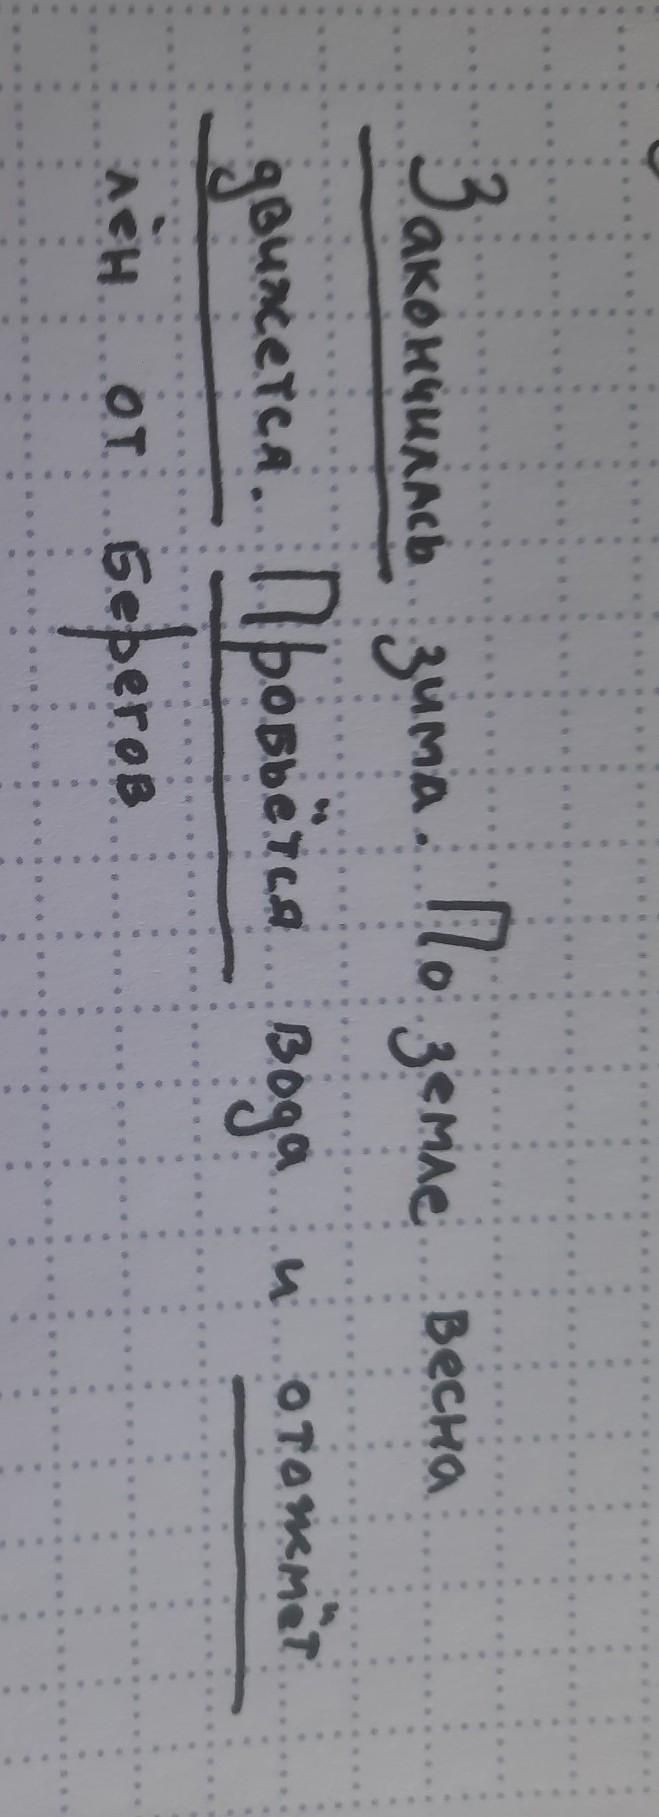 Закончилась зима. По земле весна
движется. Пробьётся вода и отожмёт
лён от берегов